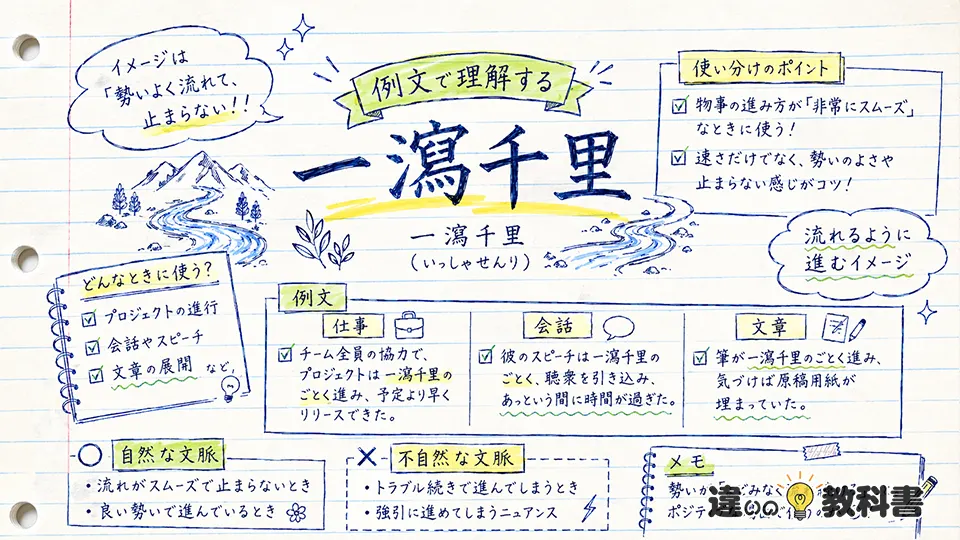 イメージは
「勢いよく流れて、
止まらない!!
例文で理解する
一瀉千里
一瀉千里
(いっしゃせんり)
使い分けのポイント
物事の進み方が「非常にスムーズ」
なときに使う!
速さだけでなく、勢いのよさや
止まらない感じがコツ!
流れるように
進むイメージ
どんなときに使う?
プロジェクトの進行
会話やスピーチ
文章の展開 など、
例文
仕事
チーム全員の協力で、
プロジェクトは一瀉千里の
ごとく進み、予定より早く
リリースできた。
会話
彼のスピーチは一瀉千里の
ごとく、聴衆を引き込み、
あっという間に時間が過ぎた。
文章
筆が一瀉千里のごとく進み、
気づけば原稿用紙が
埋まっていた。
自然な文脈
・流れがスムーズで止まらないとき
・良い勢いで進んでいるとき
不自然な文脈
・トラブル続きで進んでしまうとき
・強引に進めてしまうニュアンス
メモ
勢いが
ポジティ
違いの教科書